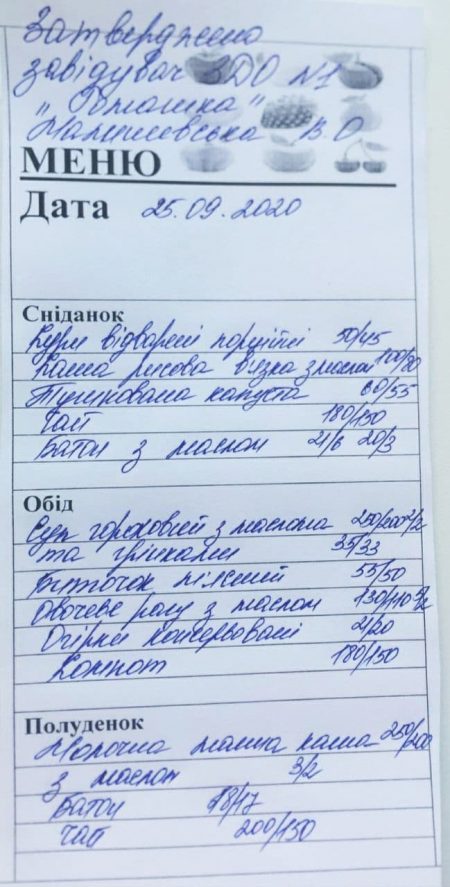 Затверджено
завідувач ЗДО №1
"Пташка"
В О
МЕНЮ
Дата 25.09.2020
Сніданок
Кури відварені порційні 50/45
Каша рисова в'язка з маслом 100/80
Тушкована капуста 60/55
Чай 180/150
Батон з маслом 21/6 20/3
Обід
Суп гороховий з маслом 250/200 2/2
та грінками 35/33
Биточок 55/50
Овочеве рагу з маслом 130/110 2/2
Огірки консервовані 21/20
Компот 180/150
Полуденок
Молочна манна каша 250/200
з маслом 3/2
Батон 18/17
Чай 200/150